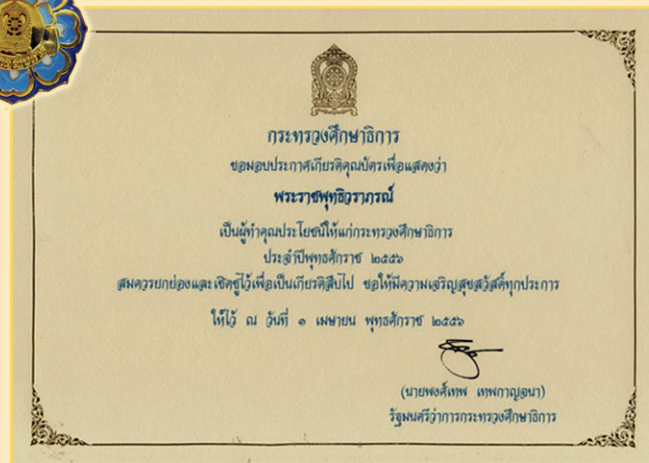 กระทรวงศึกษาธิการ
ขอมอบประกาศเกียรติคุณบัตรเพื่อแสดงว่า
พระราชพุทธิวราภรณ์
เป็นผู้ทำคุณประโยชน์ให้แก่กระทรวงศึกษาธิการ
ประจำปีพุทธศักราช ๒๕๕๖
สมควรยกย่องและเชิดชูไว้เพื่อเป็นเกียรติสืบไป ขอให้มีความเจริญสุขสวัสดิ์ทุกประการ
ให้ไว้ ณ วันที่ ๑ เมษายน พุทธศักราช ๒๕๕๖
(นายพงศ์เทพ เทพกาญจนา)
รัฐมนตรีว่าการกระทรวงศึกษาธิการ